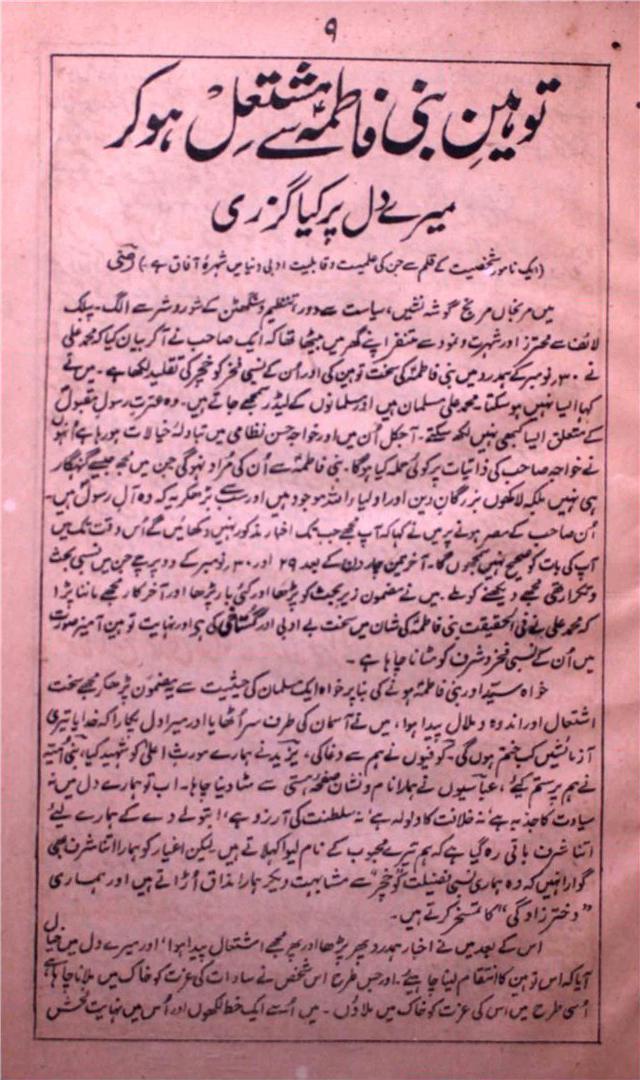 ۹
توہینِ بنی فاطمہؑ سے مشتعل ہوکر
میرے دل پر کیا گزری
(ایک نامور شخصیت کے قلم سے جن کی علمیت و قابلیت ادبی دنیا میں شہرۂ آفاق ہے۔)
میں مرنجاں مرنج گوشہ نشیں، سیاست سے دور، تنظیم و سنگھٹن کے شور و شر سے الگ۔ پبلک
لائف سے محترز اور شہرت و نمود سے متنفر اپنے گھر میں بیٹھا تھا کہ ایک صاحب نے آکر بیان کیا کہ محمد علی
نے ۳۰ نومبر کے ہمدرد میں بنی فاطمہؑ کی سخت توہین کی اور اُن کے نسبی فخر کو خچر کی تقلید لکھا ہے۔ میں نے
کہا ایسا نہیں ہوسکتا۔ محمد علی مسلمان ہیں اور مسلمانوں کے لیڈر سمجھے جاتے ہیں۔ وہ عترتِ رسولِ مقبولؐ
کے متعلق ایسا کبھی نہیں لکھ سکتے۔ آجکل اُن میں اور خواجہ حسن نظامی میں تبادلۂ خیالات ہو رہا ہے اُنہوں
نے خواجہ صاحب کی ذاتیات پر کوئی حملہ کیا ہوگا۔ بنی فاطمہؑ سے اُن کی مُراد نہوگی جن میں مجھ جیسے گنہگار
ہی نہیں بلکہ لاکھوں بزرگانِ دین اور اولیاء اللہ موجود ہیں اور سب سے بڑھکر یہ کہ وہ آلِ رسولؐ ہیں۔
اُن صاحب کے مصر ہونے پر میں نے کہا کہ آپ مجھے جب تک اخبار مذکور نہیں دکھائیں گے اُس وقت تک میں
آپ کی بات کو صحیح نہیں سمجھوں گا۔ آخر تین چار دن کے بعد ۲۹ اور ۳۰ نومبر کے دو پرچے جن میں نسبی بحث
و تکرار تھی مجھے دیکھنے کو ملے۔ میں نے مضمون زیرِ بحث کو پڑھا اور کئی بار پڑھا اور آخر کار مجھے ماننا پڑا
کہ محمد علی نے فی الحقیقت بنی فاطمہؑ کی شان میں سخت بے ادبی اور گستاخی کی ہے اور نہایت توہین آمیز صورت
میں اُن کے نسبی فخر و شرف کو مٹانا چاہا ہے۔
خواہ سیّد اور بنی فاطمہؑ ہونے کی بنا پر خواہ ایک مسلمان کی حیثیت سے یہ مضمون پڑھکر مجھے سخت
اشتعال اور اندوہ و ملال پیدا ہوا، میں نے آسمان کی طرف سر اُٹھایا اور میرا دل پکارا کہ خدایا تیری
آزمائشیں کب ختم ہوں گی۔ کوفیوں نے ہم سے دغا کی، یزید نے ہمارے مورثِ اعلیٰ کو شہید کیا، بنی اُمیّہ
نے ہم پر ستم کئے، عباسیوں نے ہمارا نام و نشان صفحۂ ہستی سے مٹا دینا چاہا۔ اب تو ہمارے دل میں نہ
سیادت کا جذبہ ہے نہ خلافت کا ولولہ ہے نہ سلطنت کی آرزو ہے، اب تو لے دے کے ہمارے لئے
اتنا شرف باقی رہ گیا ہے کہ ہم تیرے محبوب کے نام لیوا کہلاتے ہیں لیکن اغیار کو ہمارا اتنا شرف بھی
گوارا نہیں کہ وہ ہماری نسبی فضیلت کو خچر سے مشابہت دیکر ہمارا مذاق اُڑاتے ہیں اور ہماری
"دختر زادگی" کا تمسخر کرتے ہیں۔
اس کے بعد میں نے اخبار ہمدرد پھر پڑھا اور پھر مجھے اشتعال پیدا ہوا، اور میرے دل میں خیال
آیا کہ اس توہین کا انتقام لینا چاہیئے۔ اور جس طرح اس شخص نے سادات کی عزت کو خاک میں ملانا چاہا ہے
اُسی طرح میں اس کی عزت کو خاک میں ملاؤں۔ میں اُسے ایک خط لکھوں اور اُس میں نہایت فحش